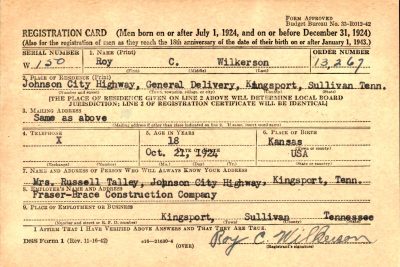 Form Approved
Budget Bureau No. 33-R012-42
REGISTRATION CARD (Men born on or after July 1, 1924, and on or before December 31, 1924)
(Also for the registration of men as they reach the 18th anniversary of the date of their birth on or after January 1, 1943.)
SERIAL NUMBER 1. NAME (Print) ORDER NUMBER
W 150 Roy C. Wilkerson 13,267
(First) (Middle) (Last)
2. PLACE OF RESIDENCE (Print)
Johnson City Highway, General Delivery, Kingsport, Sullivan Tenn.
[THE PLACE OF RESIDENCE GIVEN ON LINE 2 ABOVE WILL DETERMINE LOCAL BOARD
JURISDICTION; LINE 2 OF REGISTRATION CERTIFICATE WILL BE IDENTICAL]
3. MAILING ADDRESS
Same as above
[Mailing address if other than place indicated on line 2. If same, insert word same]
4. TELEPHONE 5. AGE IN YEARS 6. PLACE OF BIRTH
X 18 Kansas
DATE OF BIRTH
Oct. 21, 1924 USA
7. NAME AND ADDRESS OF PERSON WHO WILL ALWAYS KNOW YOUR ADDRESS
Mrs. Russell Talley, Johnson City Highway, Kingsport, Tenn.
8. EMPLOYER'S NAME AND ADDRESS
Fraser-Brace Construction Company
9. PLACE OF EMPLOYMENT OR BUSINESS
Kingsport, Sullivan Tennessee
(Number and street or R. F. D. number) (Town) (County) (State)
I AFFIRM THAT I HAVE VERIFIED ABOVE ANSWERS AND THAT THEY ARE TRUE.
DSS Form 1 (Rev. 11-16-42) (OVER) Roy C. Wilkerson
(Registrant's signature)